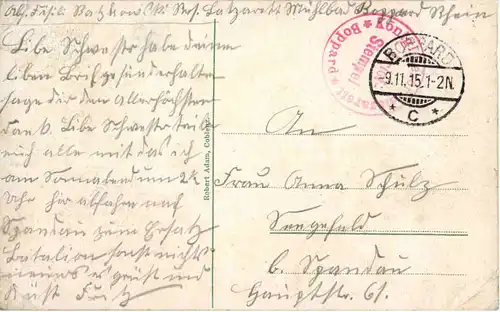 Abs. Füsil. Batzkowski Res. Lazarett Mühlbad Boppard Rhein
Libe Schwester habe deinen
liben Brief gesund erhalten
sage dir den Allerhöchsten
Dank. Libe Schwester teile
euch alle mit das ich
am Sonnabend um 2½
Uhr hir abfahre nach
Spandau zum Ersatz
Batalion sonst nichts
neues es grüst und
Küst Fritz
Robert Adam, Coblenz
Stempel
Boppard
BOPPARD
9.11.15. 1-2N.
* C *
An
Frau Anna Schulz
Seegefeld
b. Spandau
Hauptstr. 61.